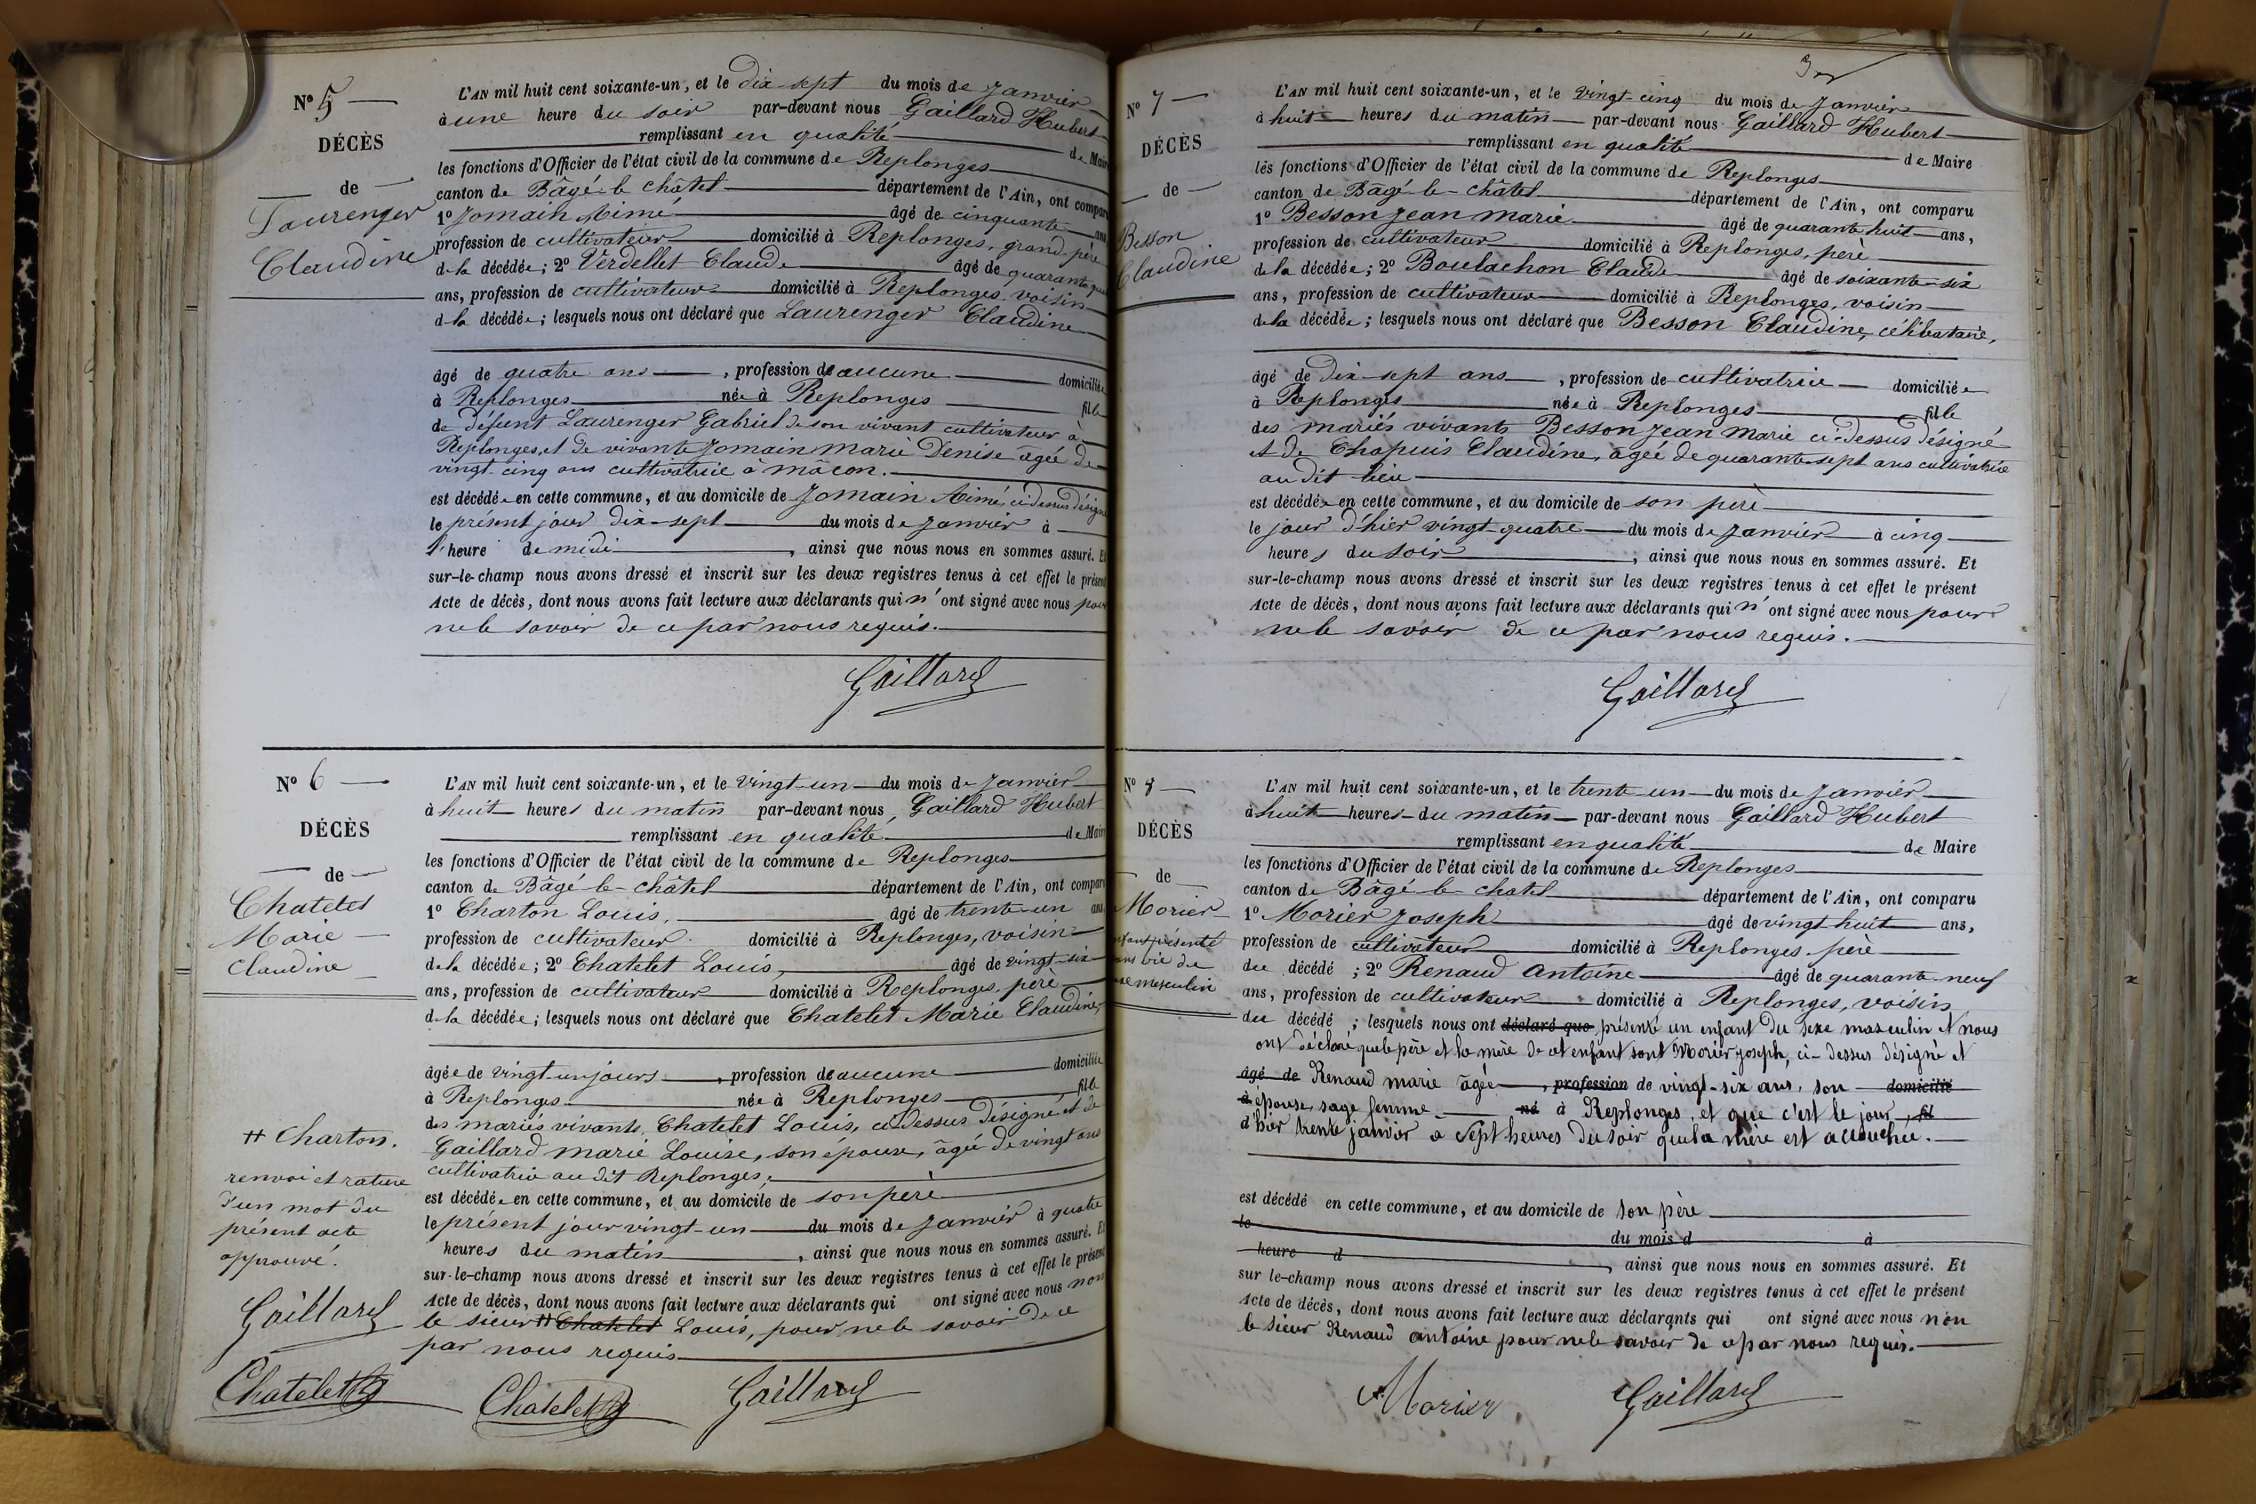 N° 5
DÉCÈS
de
Laurenger
Claudine
L'AN mil huit cent soixante-un, et le dix-sept du mois de Janvier
à une heure du soir par-devant nous Gaillard Hubert
remplissant en qualité de Maire
les fonctions d'Officier de l'état civil de la commune de Replonges
canton de Bâgé-le-châtel département de l'Ain, ont comparu
1° Jomain Aimé âgé de cinquante ans
profession de cultivateur domicilié à Replonges, grand-père
de la décédée; 2° Verdellet Claude âgé de quarante
ans, profession de cultivateur domicilié à Replonges, voisin
de la décédée; lesquels nous ont déclaré que Laurenger Claudine
âgé de quatre ans, profession de aucune domiciliée
à Replonges née à Replonges fille
de défunt Laurenger Gabriel de son vivant cultivateur à
Replonges, et de vivante Jomain Marie Denise âgée de
vingt-cinq ans cultivatrice à mâcon.
est décédée en cette commune, et au domicile de Jomain Aimé, ci-dessus désigné
le présent jour dix-sept du mois de Janvier à
l'heure de midi, ainsi que nous nous en sommes assuré. Et
sur-le-champ nous avons dressé et inscrit sur les deux registres tenus à cet effet le présent
Acte de décès, dont nous avons fait lecture aux déclarants qui n'ont signé avec nous pour
ne le savoir de ce par nous requis.
Gaillard
N° 6
DÉCÈS
de
Chatelet
Marie
Claudine
L'AN mil huit cent soixante-un, et le vingt-un du mois de Janvier
à huit heures du matin par-devant nous Gaillard Hubert
remplissant en qualité de Maire
les fonctions d'Officier de l'état civil de la commune de Replonges
canton de Bâgé-le-châtel département de l'Ain, ont comparu
1° Charton Louis, âgé de trente-un ans
profession de cultivateur domicilié à Replonges, voisin
de la décédée; 2° Chatelet Louis, âgé de vingt-six
ans, profession de cultivateur domicilié à Replonges, père
de la décédée; lesquels nous ont déclaré que Chatelet Marie Claudine,
âgée de vingt-un jours, profession de aucune domiciliée
à Replonges née à Replonges fille
des mariés vivants, Chatelet Louis, ci-dessus désigné et de
Gaillard marie Louise, son épouse, âgée de vingt ans
cultivatrice au dit Replonges,
est décédée en cette commune, et au domicile de son père
le présent jour vingt-un du mois de Janvier à quatre
heures du matin, ainsi que nous nous en sommes assuré. Et
sur-le-champ nous avons dressé et inscrit sur les deux registres tenus à cet effet le présent
Acte de décès, dont nous avons fait lecture aux déclarants qui ont signé avec nous non
le sieur # Chatelet Louis, pour ne le savoir de ce
par nous requis
# Charton.
renvoi et rature
d'un mot du
présent acte
approuvé.
Gaillard
Chatelet
Chatelet
Gaillard
N° 7
DÉCÈS
de
Besson
Claudine
L'AN mil huit cent soixante-un, et le vingt-cinq du mois de Janvier
à huit heures du matin par-devant nous Gaillard Hubert
remplissant en qualité de Maire
les fonctions d'Officier de l'état civil de la commune de Replonges
canton de Bâgé-le-châtel département de l'Ain, ont comparu
1° Besson Jean Marie âgé de quarante-huit ans,
profession de cultivateur domicilié à Replonges, père
de la décédée; 2° Boulachon Claude âgé de soixante-six
ans, profession de cultivateur domicilié à Replonges, voisin
de la décédée; lesquels nous ont déclaré que Besson Claudine, célibataire,
âgé de dix-sept ans, profession de cultivatrice domiciliée
à Replonges née à Replonges fille
des mariés vivants Besson Jean Marie ci-dessus désigné
et de Chapuis Claudine, âgée de quarante-sept ans cultivatrice
au dit lieu
est décédée en cette commune, et au domicile de son père
le jour d'hier vingt-quatre du mois de Janvier à cinq
heures du soir, ainsi que nous nous en sommes assuré. Et
sur-le-champ nous avons dressé et inscrit sur les deux registres tenus à cet effet le présent
Acte de décès, dont nous avons fait lecture aux déclarants qui n'ont signé avec nous pour
ne le savoir de ce par nous requis.
Gaillard
N° 8
DÉCÈS
de
Morier
enfant présenté
sans vie de
sexe masculin
L'AN mil huit cent soixante-un, et le trente-un du mois de Janvier
à huit heures du matin par-devant nous Gaillard Hubert
remplissant en qualité de Maire
les fonctions d'Officier de l'état civil de la commune de Replonges
canton de Bâgé-le-chatel département de l'Ain, ont comparu
1° Morier Joseph âgé de vingt-huit ans,
profession de cultivateur domicilié à Replonges, père
du décédé; 2° Renaud Antoine âgé de quarante-neuf
ans, profession de cultivateur domicilié à Replonges, voisin
du décédé; lesquels nous ont déclaré que présenté un enfant du sexe masculin et nous
ont déclaré que le père et la mère de cet enfant sont Morier Joseph, ci-dessus désigné et
âgé de Renaud marie âgée, profession de vingt-six ans, son domicilié
à épouse, sage femme né à Replonges, et que c'est le jour fil
d'hier trente janvier à sept heures du soir que la mère est accouchée.
est décédé en cette commune, et au domicile de son père
le du mois d à
heure d, ainsi que nous nous en sommes assuré. Et
sur le-champ nous avons dressé et inscrit sur les deux registres tenus à cet effet le présent
Acte de décès, dont nous avons fait lecture aux déclarants qui ont signé avec nous non
le sieur Renaud antoine pour ne le savoir de ce par nous requis.
Morier
Gaillard